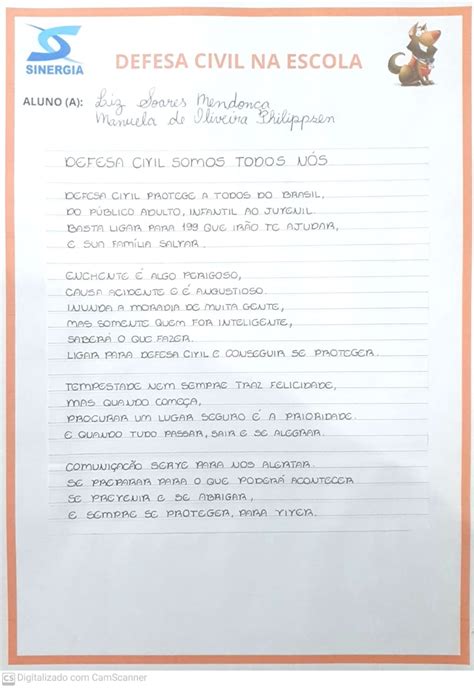 SINERGIA
DEFESA CIVIL NA ESCOLA
ALUNO (A): Liz Soares Mendonça
Manuela de Oliveira Philippsen
DEFESA CIVIL SOMOS TODOS NÓS
DEFESA CIVIL PROTEGE A TODOS DO BRASIL,
DO PÚBLICO ADULTO, INFANTIL AO JUVENIL.
BASTA LIGAR PARA 199 QUE IRÃO TE AJUDAR,
E SUA FAMÍLIA SALVAR.
ENCHENTE É ALGO PERIGOSO,
CAUSA ACIDENTE E É ANGUSTIOSO.
INUNDA A MORADIA DE MUITA GENTE,
MAS SOMENTE QUEM FOR INTELIGENTE,
SABERÁ O QUE FAZER.
LIGAR PARA DEFESA CIVIL E CONSEGUIR SE PROTEGER.
TEMPESTADE NEM SEMPRE TRAZ FELICIDADE,
MAS QUANDO COMEÇA,
PROCURAR UM LUGAR SEGURO É A PRIORIDADE.
E QUANDO TUDO PASSAR, SAIR E SE ALEGRAR.
COMUNICAÇÃO SERVE PARA NOS ALERTAR.
SE PREPARAR PARA O QUE PODERÁ ACONTECER
SE PREVENIR E SE ABRIGAR,
E SEMPRE SE PROTEGER, PARA VIVER.
CS Digitalizado com CamScanner